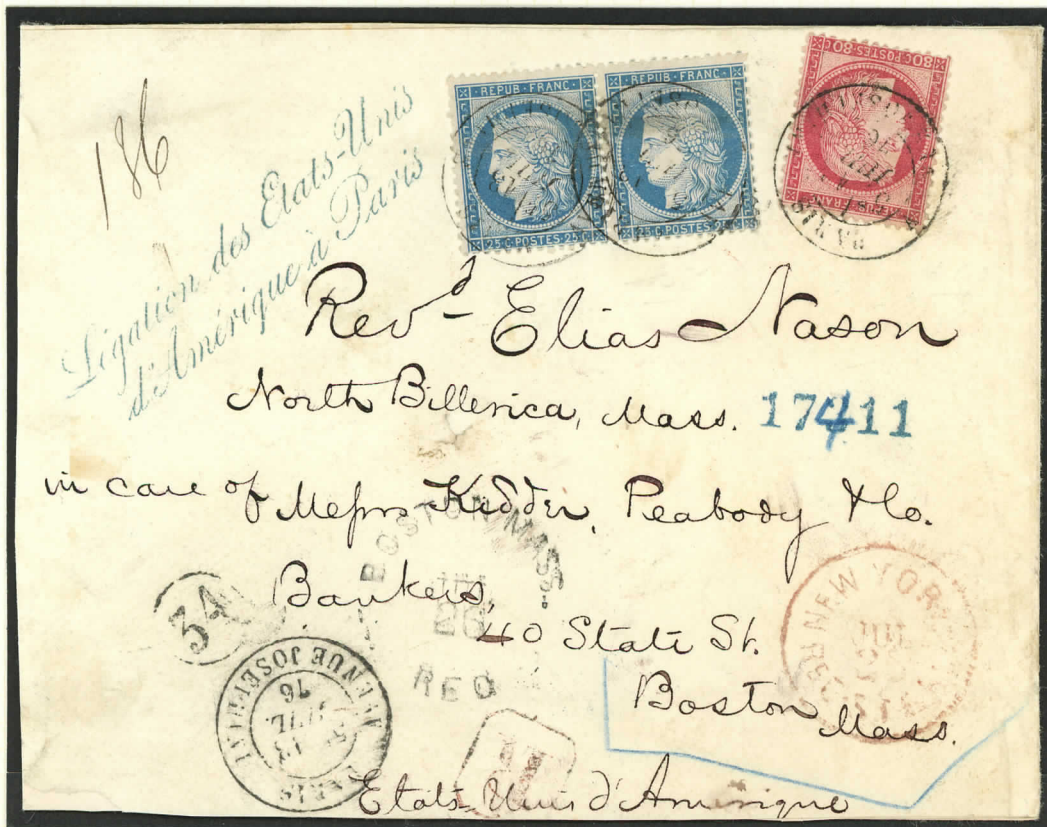 186
Légation des Etats-Unis
d'Amérique à Paris
REPUB FRANC
25 C. POSTES 25 C.
REPUB FRANC
25 C. POSTES 25 C.
80 C. POSTES 80 C.
REPUB FRANC
PARIS
Revd Elias Nason
North Billerica, Mass. 17411
in care of Messrs Kidder, Peabody & Co.
Bankers,
40 State St.
Boston
Mass.
Etats-Unis d'Amérique
BOSTON MASS.
REG
34
PARIS
AVENUE JOSEPHINE
16
JUIL.
NEW YORK
R